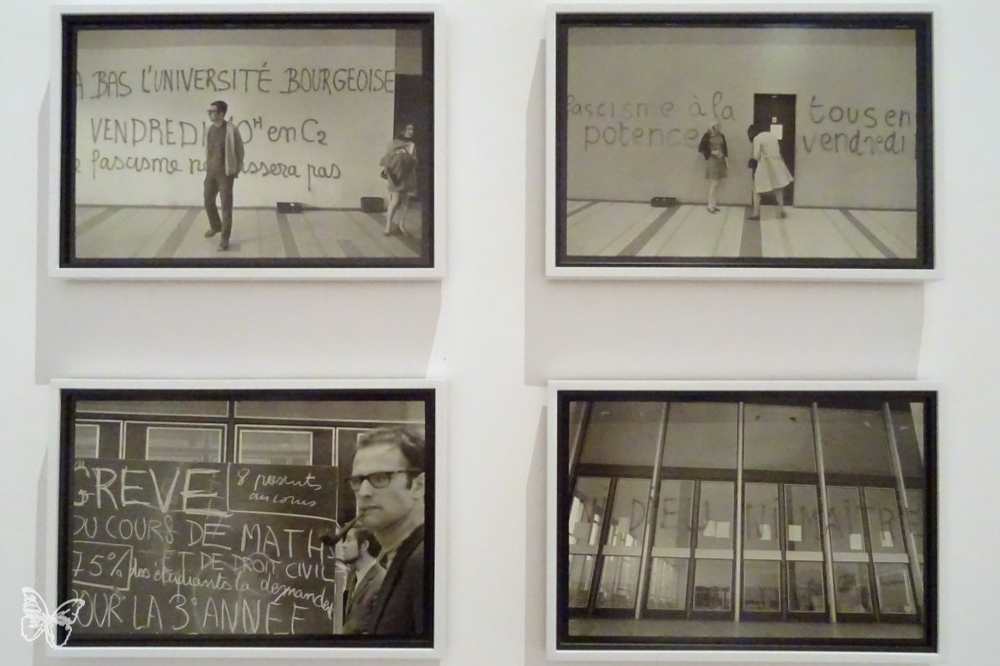 A BAS L'UNIVERSITÉ BOURGEOISE
VENDREDI 10H en C2
fascisme ne passera pas
fascisme à la
potence
tous en
vendredi
GREVE
8 présents
au cours
DU COURS DE MATH
ET DE DROIT CIVIL
75% des étudiants la demandent
POUR LA 3e ANNÉE
NI DIEU NI MAITRE